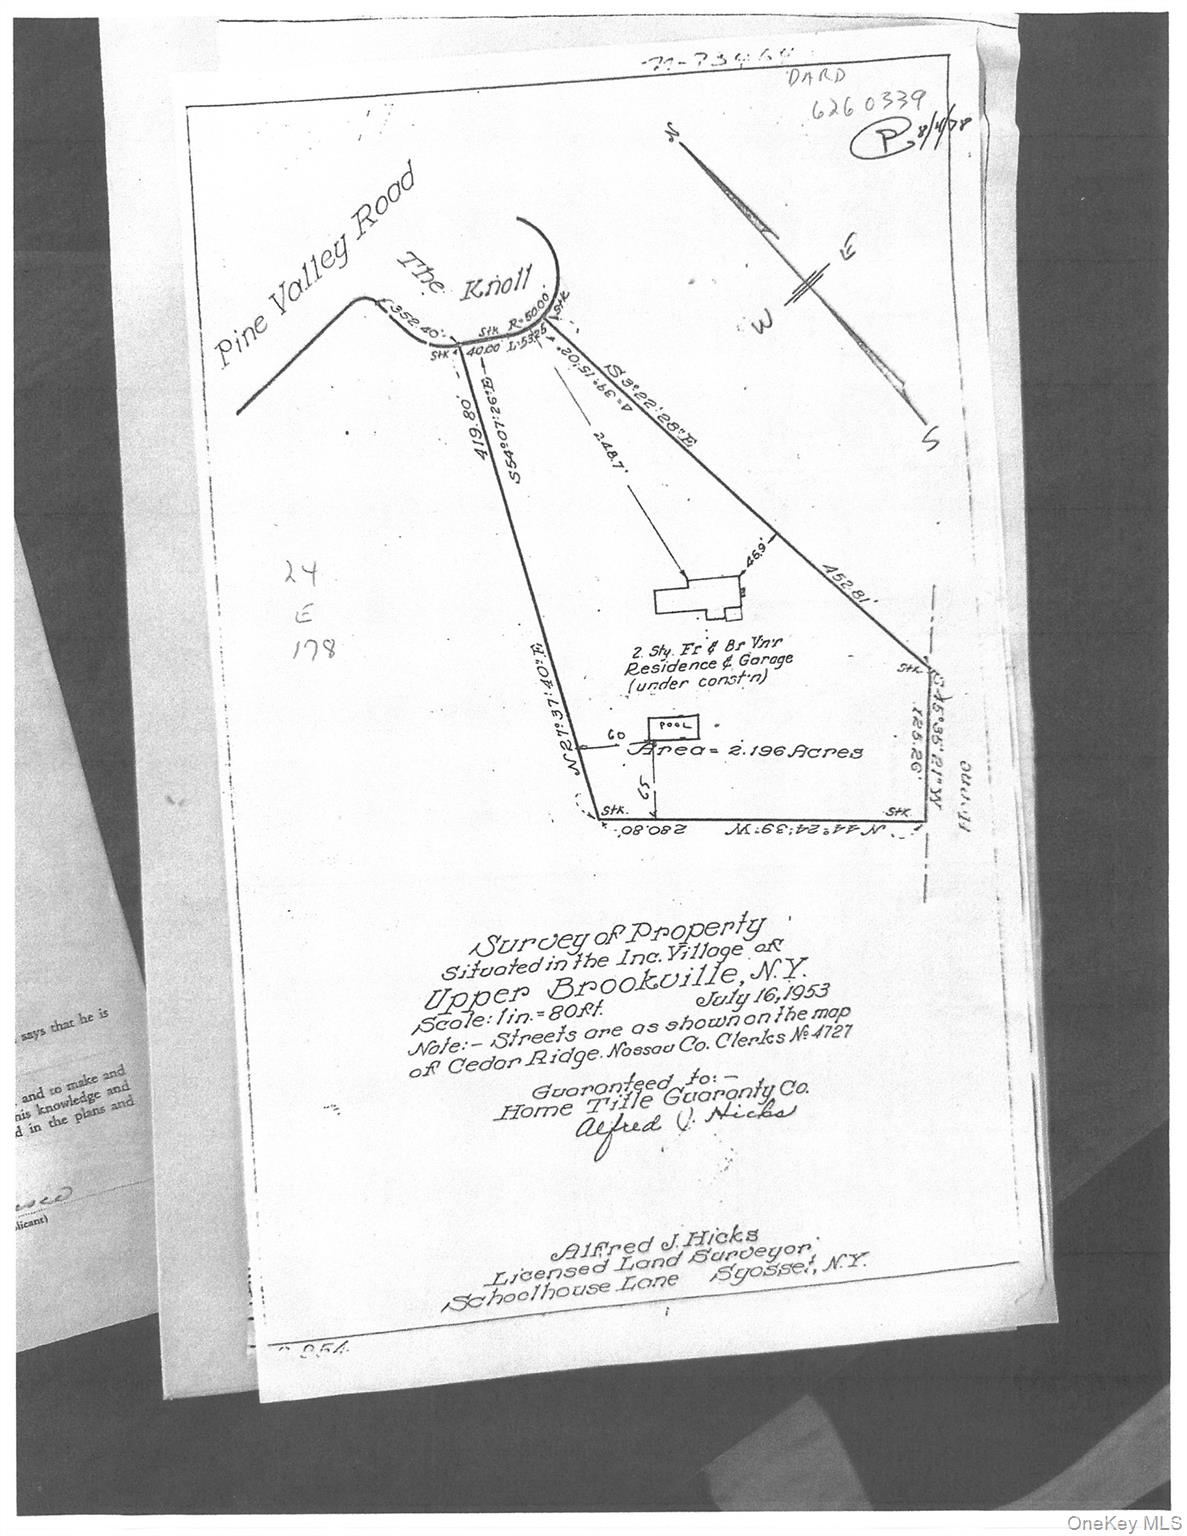 DARD
626 0339
P 8/4/78
N
E
W
S
Pine Valley Road
The Knoll
352.40'
Stk
Stk
R=50.00'
Stk
40.00
L=53.25
419.80'
S54°07'26"E
S 3°22'28"E
248.7'
46.9'
452.81'
24
E
178
N 27°37'40"E
2 Sty. Fr & Br Vn'r
Residence & Garage
(under const'n)
Stk.
POOL
60
Area = 2.196 Acres
65
125.26'
Stk.
Stk.
280.80'
N 44°24'39"W
Survey of Property
Situated in the Inc. Village of
Upper Brookville, N.Y.
Scale: 1 in. = 80 ft. July 16, 1953
Note:- Streets are as shown on the map
of Cedar Ridge. Nassau Co. Clerks No 4727
Guaranteed to:-
Home Title Guaranty Co.
Alfred J. Hicks
Alfred J. Hicks
Licensed Land Surveyor.
Schoolhouse Lane Syosset, N.Y.
says that he is
and to make and
his knowledge and
in the plans and
OneKey MLS